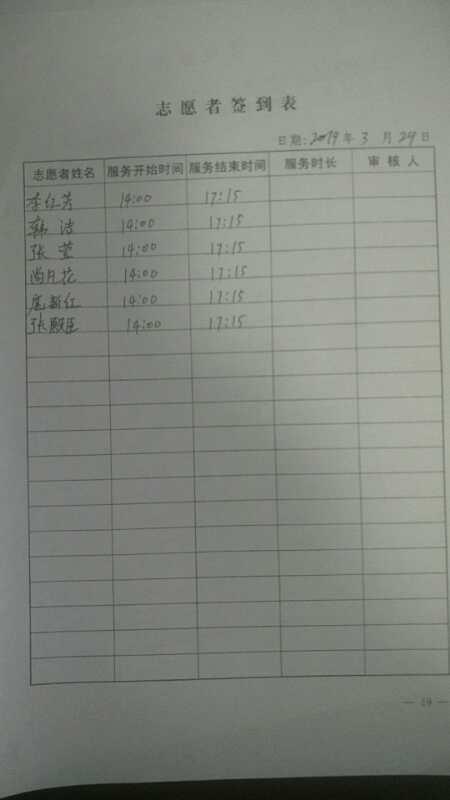 志愿者签到表
日期: 2019 年 3 月 29 日
志愿者姓名 服务开始时间 服务结束时间 服务时长 审核人
李红芳 14:00 17:15
韩洁 14:00 17:15
张莹 14:00 17:15
尚凡花 14:00 17:15
庞新红 14:00 17:15
张殿臣 14:00 17:15
— 49 —